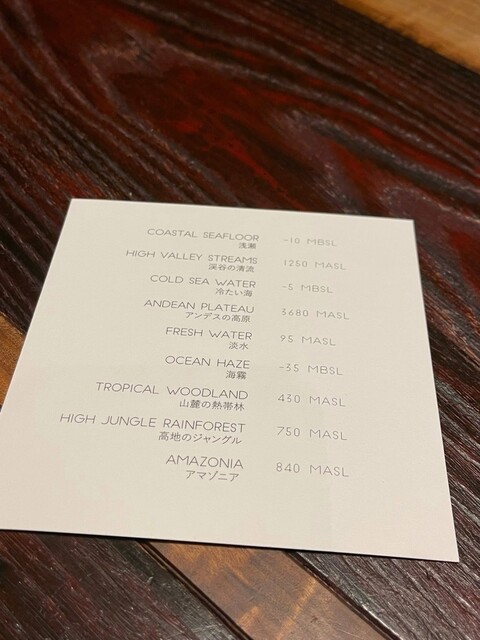 COASTAL SEAFLOOR -10 MBSL
浅瀬
HIGH VALLEY STREAMS 1250 MASL
渓谷の清流
COLD SEA WATER -5 MBSL
冷たい海
ANDEAN PLATEAU 3680 MASL
アンデスの高原
FRESH WATER 95 MASL
淡水
OCEAN HAZE -35 MBSL
海霧
TROPICAL WOODLAND 430 MASL
山麓の熱帯林
HIGH JUNGLE RAINFOREST 750 MASL
高地のジャングル
AMAZONIA 840 MASL
アマゾニア